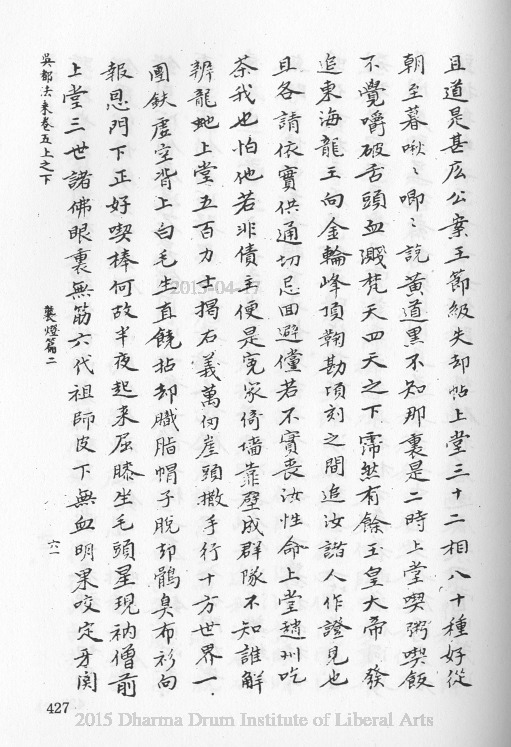 且道是甚庅公案王節級失却帖上堂三十二相八十種好從
朝至暮啾〻唧〻說黃道黑不知那裏是二時上堂喫粥喫飯
不覺嚼破舌頭血濺梵天四天之下霈然有餘玉皇大帝發
追東海龍王向金輪峰頂鞠勘頃刻之間追汝諸人作證見也
且各請依實供通切忌回避儻若不實喪汝性命上堂趙州吃
茶我也怕他若非債主便是寃家倚墻靠壁成群隊不知誰解
辨龍虵上堂五百力士揭石義萬仞崖頭撒手行十方世界一
團鉄虛空背上白毛生直饒拈却膱脂帽子脫却鶻臭布衫向
報恩門下正好喫棒何故半夜起来屈膝坐毛頭星現衲僧前
上堂三世諸佛眼裏無筋六代祖師皮下無血明果咬定牙関
吳都法乘卷五上之下
襲燈篇二
六一
427
2015-04-17
2015 Dharma Drum Institute of Liberal Arts